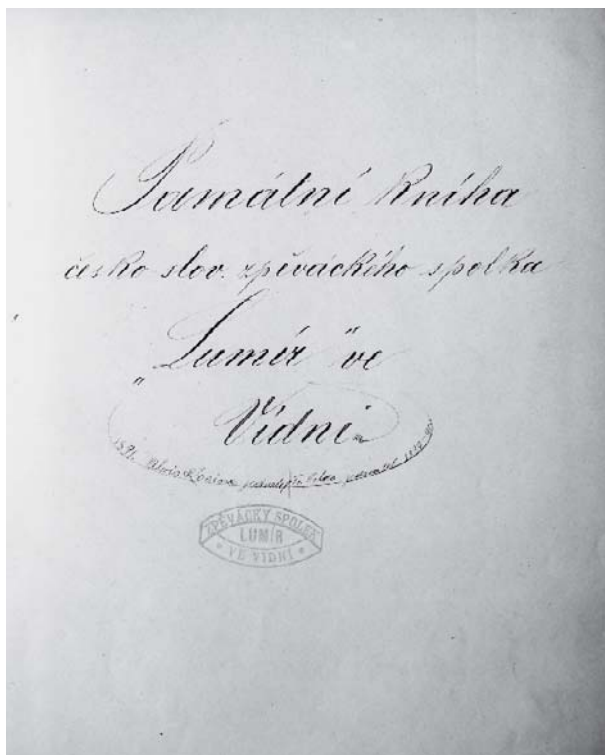 Památní kniha
česko slov. zpěváckého spolka
„Lumír" ve
Vídni
1891
ZPĚVÁCKÝ SPOLEK
LUMÍR
VE VÍDNI